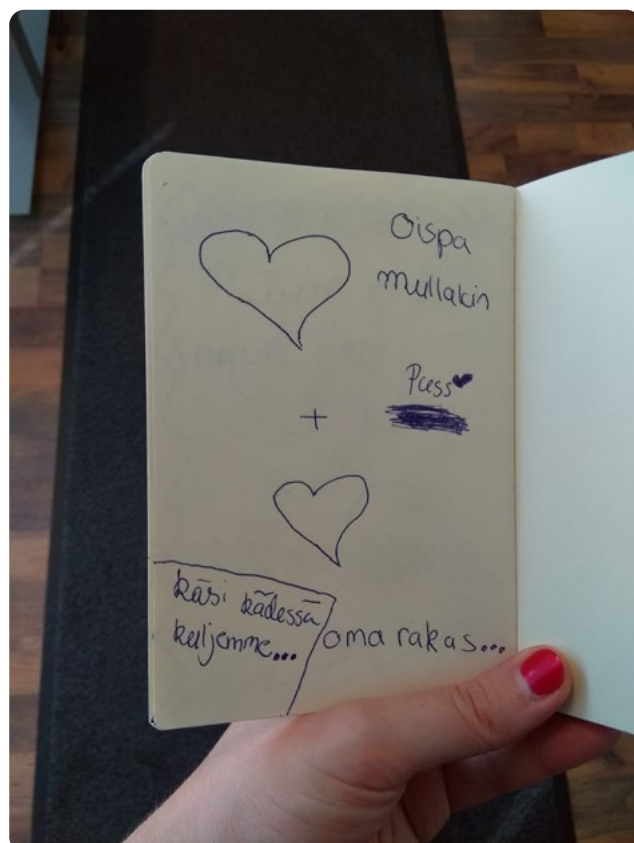 Oispa
mullakin
Puss
+
käsi kädessä
kuljemme...
oma rakas...